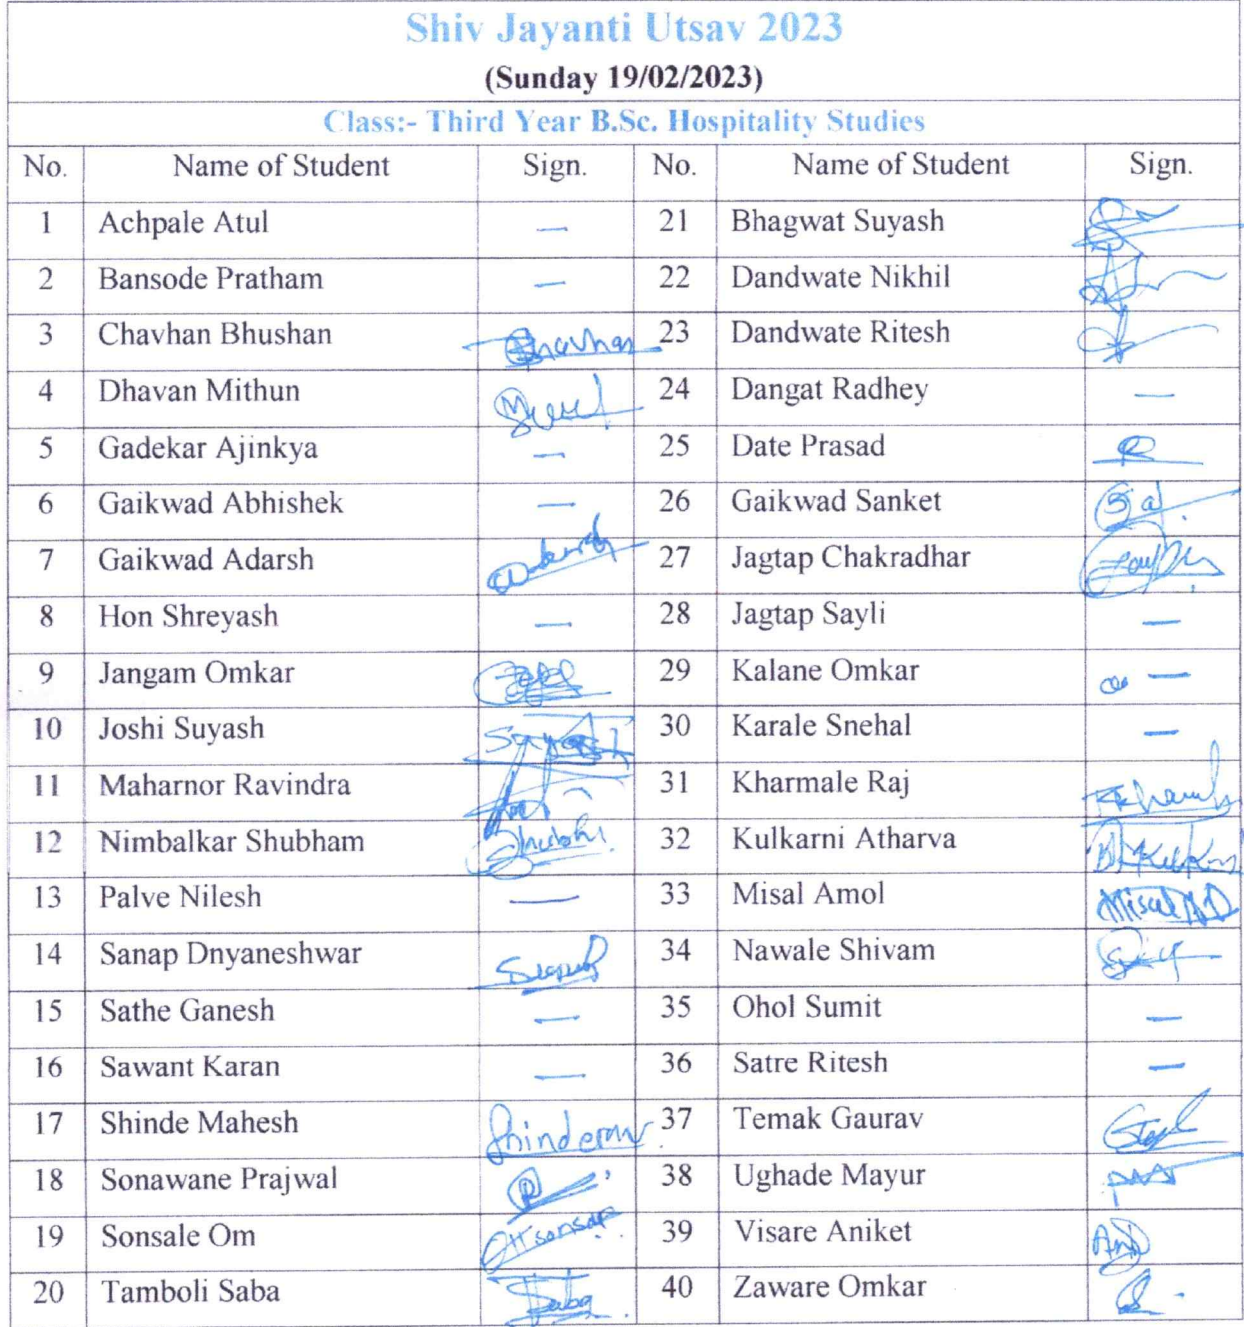 Shiv Jayanti Utsav 2023
(Sunday 19/02/2023)
Class:- Third Year B.Sc. Hospitality Studies
No. Name of Student Sign. No. Name of Student Sign.
1 Achpale Atul — 21 Bhagwat Suyash
2 Bansode Pratham — 22 Dandwate Nikhil
3 Chavhan Bhushan 23 Dandwate Ritesh
4 Dhavan Mithun 24 Dangat Radhey —
5 Gadekar Ajinkya — 25 Date Prasad
6 Gaikwad Abhishek — 26 Gaikwad Sanket
7 Gaikwad Adarsh 27 Jagtap Chakradhar
8 Hon Shreyash — 28 Jagtap Sayli —
9 Jangam Omkar 29 Kalane Omkar —
10 Joshi Suyash 30 Karale Snehal —
11 Maharnor Ravindra 31 Kharmale Raj
12 Nimbalkar Shubham 32 Kulkarni Atharva
13 Palve Nilesh — 33 Misal Amol
14 Sanap Dnyaneshwar 34 Nawale Shivam
15 Sathe Ganesh — 35 Ohol Sumit —
16 Sawant Karan — 36 Satre Ritesh —
17 Shinde Mahesh 37 Temak Gaurav
18 Sonawane Prajwal 38 Ughade Mayur
19 Sonsale Om 39 Visare Aniket
20 Tamboli Saba 40 Zaware Omkar